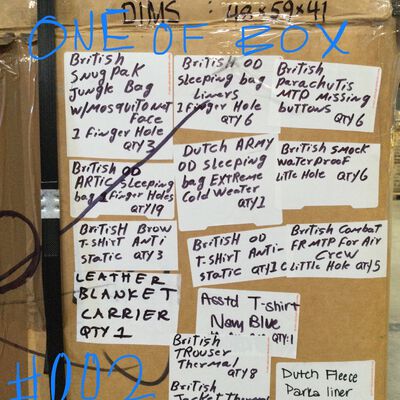 DIMS : 48x59x41
ONE OF BOX
British
SNUGPAK
JUNGLE Bag
W/MOSQUITO NET
FACE
1 Finger Hole
QTY 3
British OD
Sleeping bag
Liners
1 Finger Hole
QTY 6
British
Parachutis
MTP Missing
buttons
QTY 6
British OD
ARTIC Sleeping
bag 1 Finger Holes
QTY 19
Dutch ARMY
OD Sleeping
bag EXTREME
Cold Weater
QTY 1
British SMOCK
Waterproof
Little Hole QTY 6
British Brow
T-SHIRT ANTI
STATIC QTY 3
British OD
T-SHIRT ANTI-
STATIC QTY 1
British Combat
FR MTP For Air
Crew
Little Hole QTY 5
LEATHER
BLANKET
CARRIER
QTY 1
Asstd T-shirt
Navy Blue
QTY:1
British
TROUSER
Thermal
QTY 8
British
Jacket Thermal
Dutch Fleece
Parka liner
#002